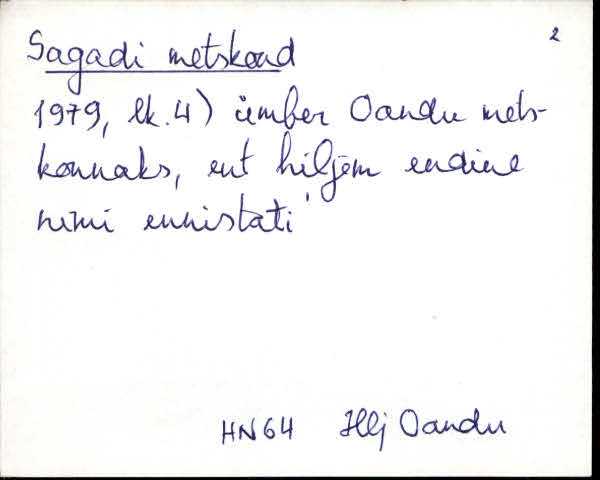 2
Sagadi metskond
1979, lk. 4) ümber Oandu mets-
konnaks, ent hiljem endine
nimi ennistati
HN64 Hlj Oandu